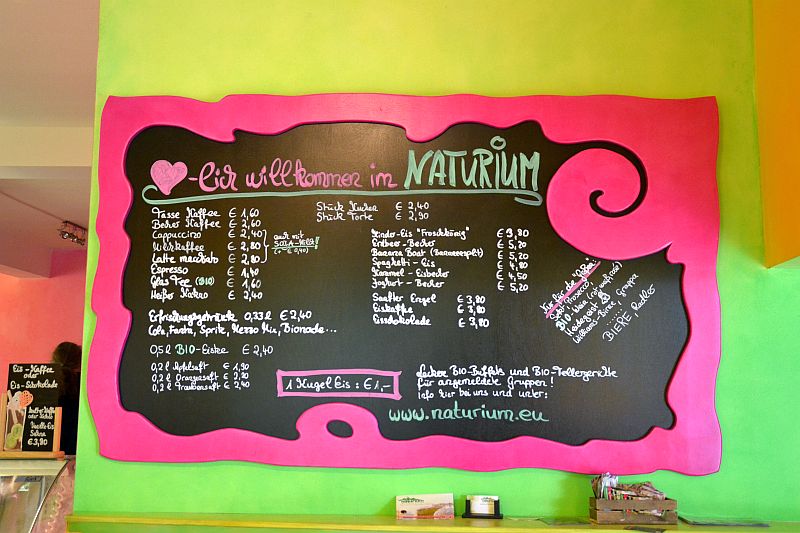 -lich willkommen im NATURIUM
Tasse Kaffee € 1,60
Becher Kaffee € 2,60
Cappuccino € 2,40
Milchkaffee € 2,80
Latte macchiato € 2,80
Espresso € 1,40
Glas Tee (BIO) € 1,60
Heißer Kakao € 2,40
auch mit
SOJA-MILCH!
Stück Kuchen € 2,40
Stück Torte € 2,90
Kinder-Eis "Froschkönig" € 3,80
Erdbeer-Becher € 5,20
Banana Boat (Bananensplit) € 5,20
Spaghetti-Eis € 4,80
Karamel-Eisbecher € 4,50
Joghurt-Becher € 5,20
Sanfter Engel € 3,80
Eiskaffee € 3,80
Eisschokolade € 3,80
Erfrischungsgetränke 0,33 l € 2,40
Cola, Fanta, Sprite, Mezzo Mix, Bionade...
0,5 l BIO- € 2,40
0,2 l Apfelsaft € 1,90
0,2 l Orangensaft € 2,20
0,2 l Traubensaft € 2,40
1 Kugel Eis : € 1,-
leckere BIO-Buffets und BIO-Tellergerichte
für angemeldete Gruppen!
Info hier bei uns und unter:
www.naturium.eu
Nur für die
Prosecco,
BIO Wein (rot, weiß, rosé)
Williams Birne,
BIERE, Radler
Eis-Kaffee
oder
Eis-Schokolade
Vanille-Eis
Sahne
€ 3,80